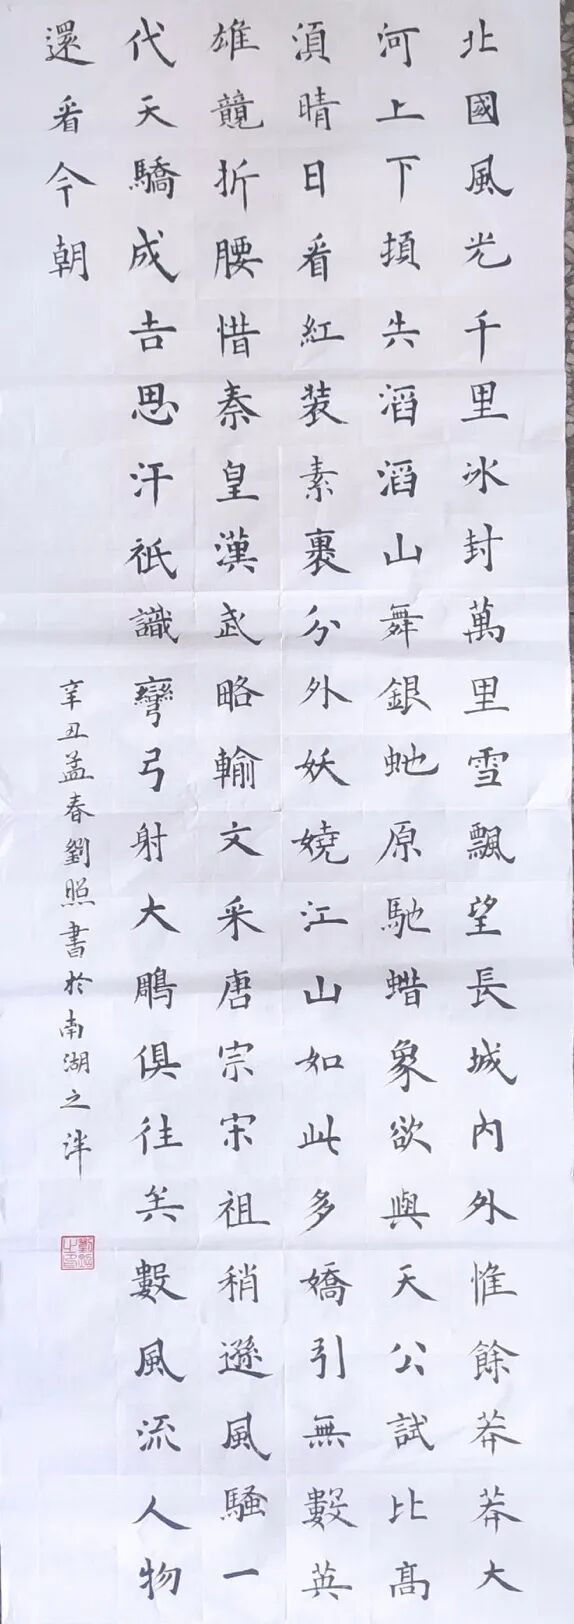 北國風光千里冰封萬里雪飄望長城內外惟餘莽莽大
河上下頓失滔滔山舞銀虵原馳蜡象欲與天公試比高
湏晴日看紅裝素裹分外妖嬈江山如此多嬌引無數英
雄競折腰惜秦皇漢武略輸文采唐宗宋祖稍遜風騷一
代天驕成吉思汗祇識彎弓射大鵰俱往矣數風流人物
還看今朝
辛丑孟春劉照書於南湖之泮